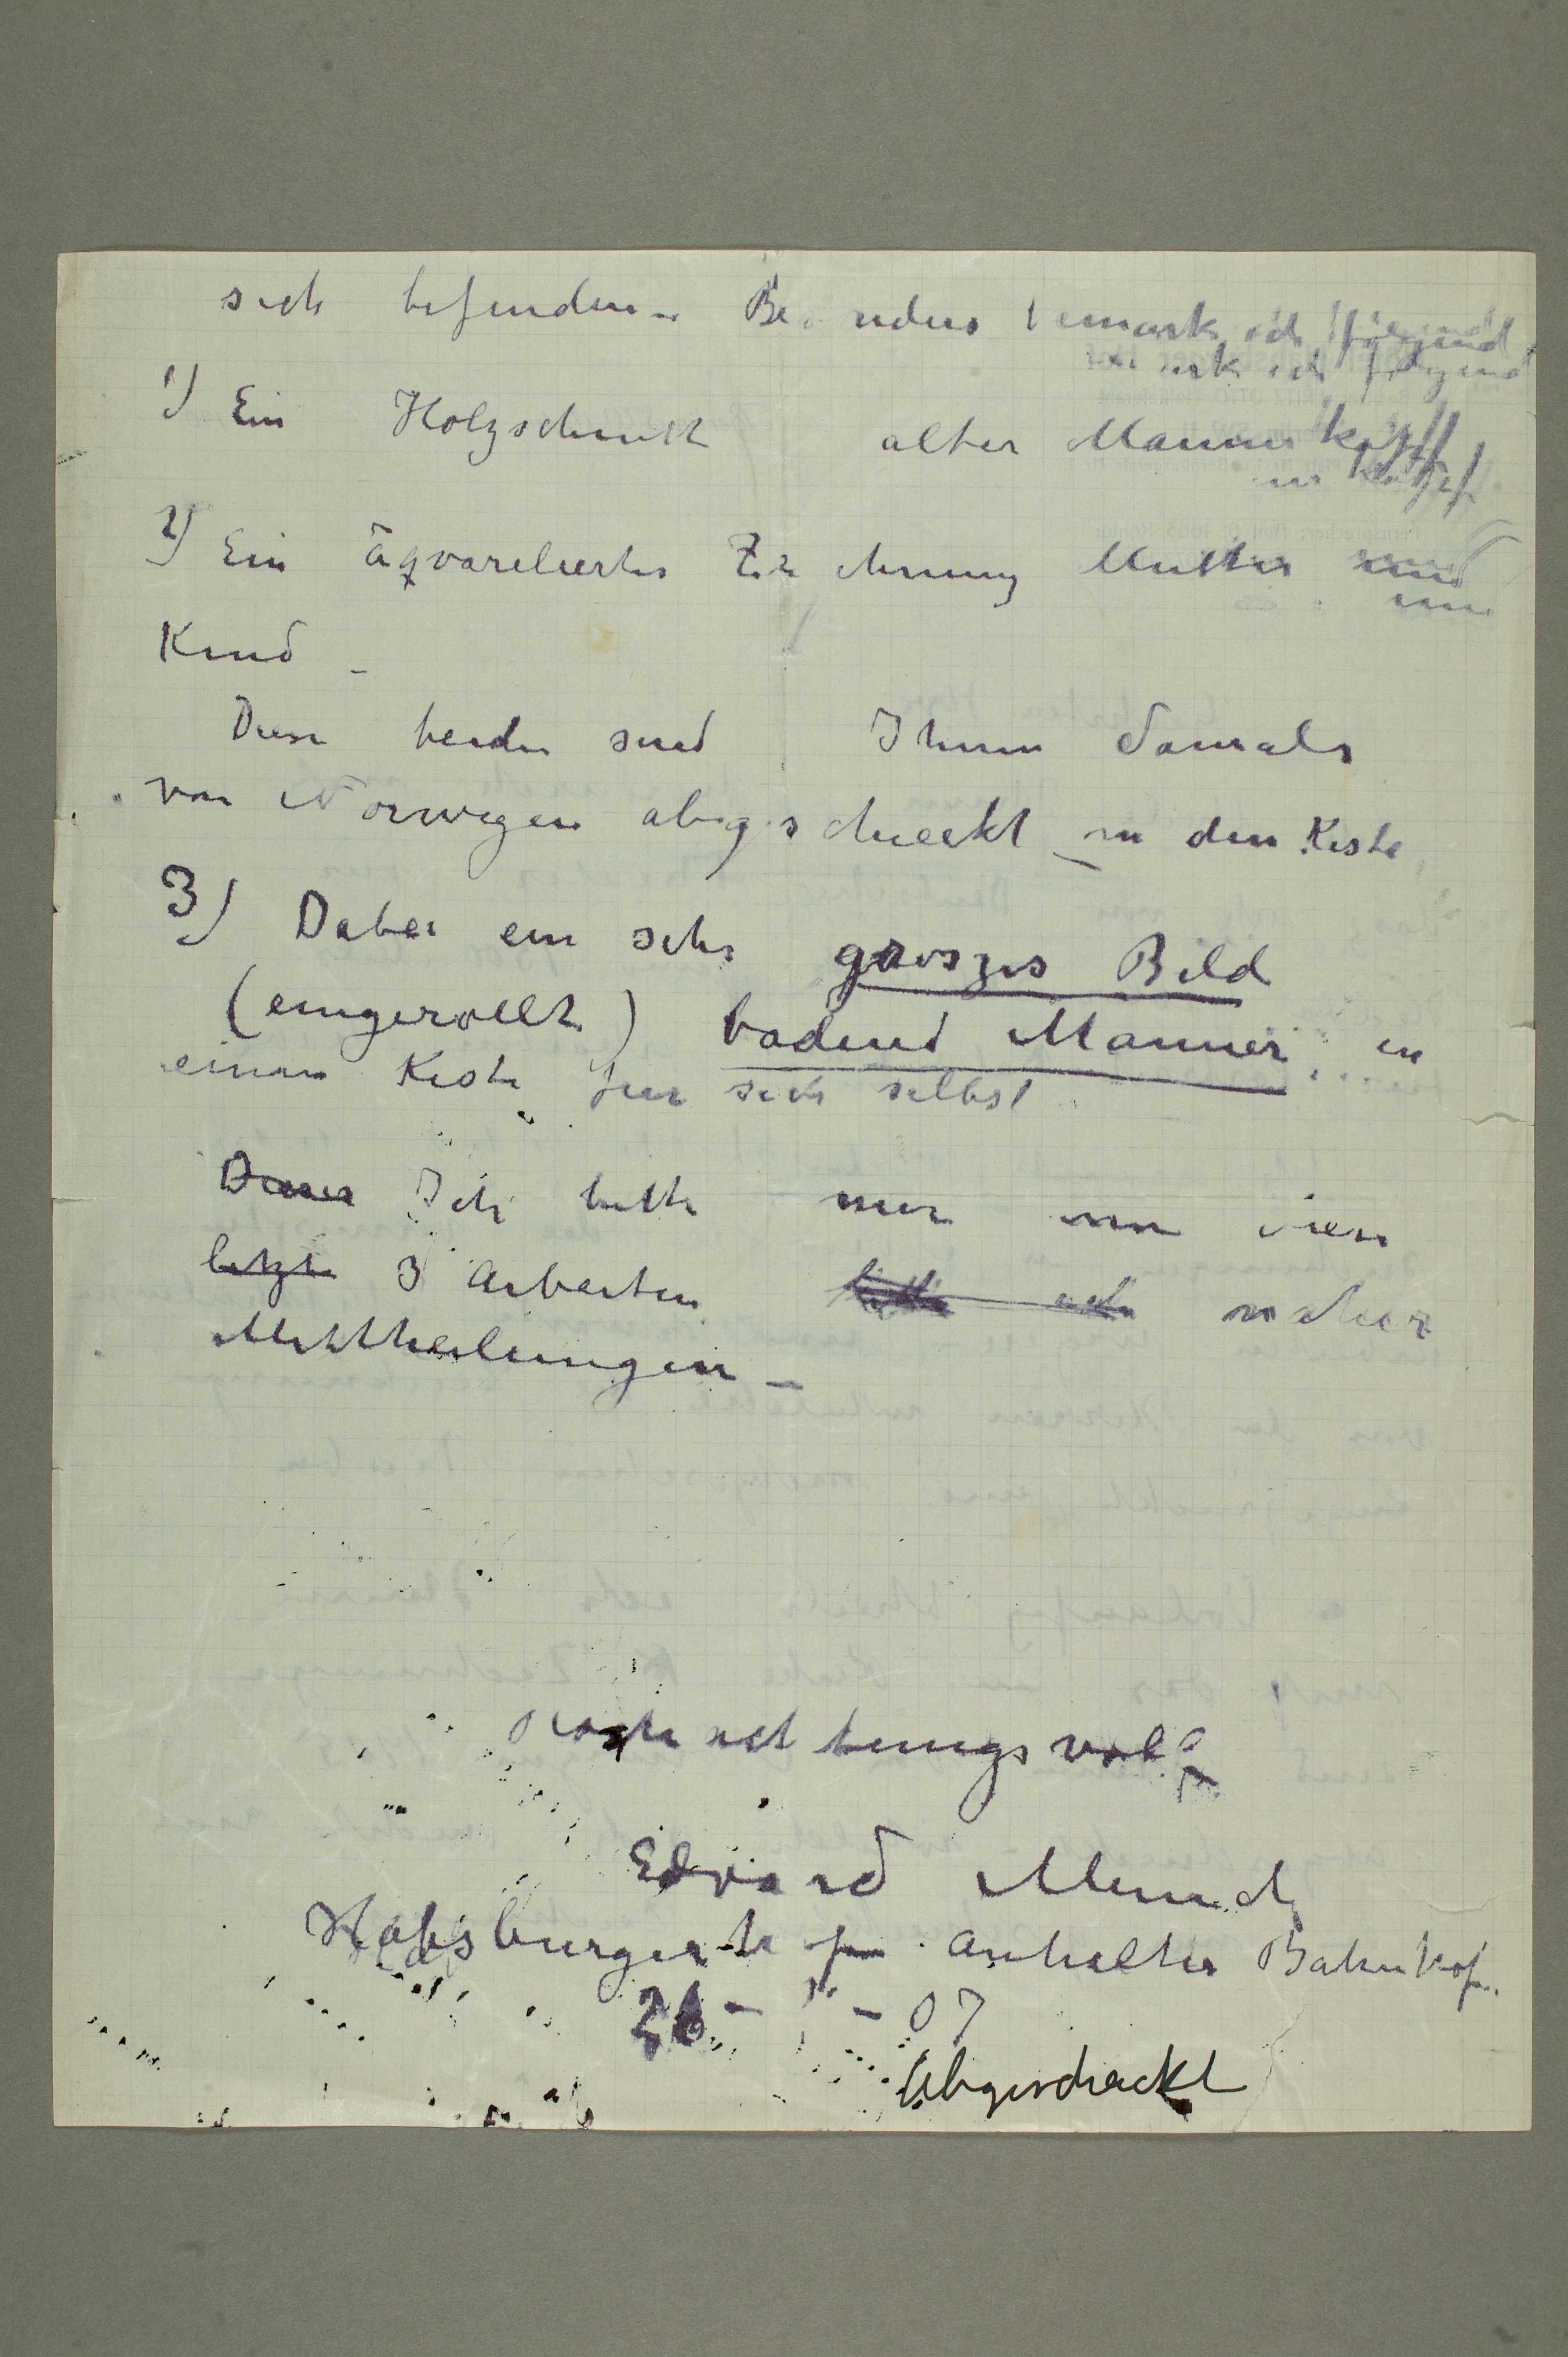 sich befinden – Besonders bemerk ich folgend
1) Ein Holzschnitt alter Manner kopff
2) Ein äqvareliertes Zeichnung Mutter und
Kind –
Diese beiden sind Ihnen damals
von Norwegen abgeschieckt in den Kiste
3) Dabei ein sehr groszes Bild
(eingerollt) badend Manner in
einen Kiste fur sich selbst
Dieser Ich bitte mir um
letzte 3 Arbeiten bitte ich naher
Mittheilungen –
Hochachtungsvoll
Edvard Munch
Habsburgerhof Anhalter Bahnhof.
07
Abgeschieckt